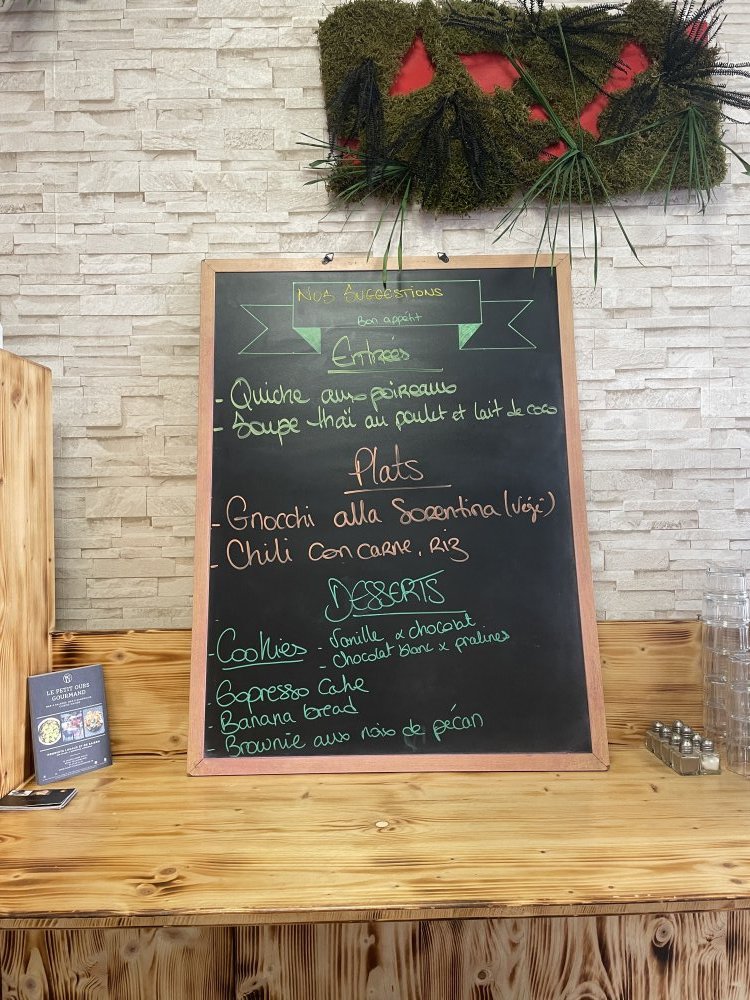 Nos Suggestions
Bon appétit
Entrées
- Quiche aux poireaux
- Soupe thaï au poulet et lait de coco
Plats
- Gnocchi alla Sorentina (Végé)
- Chili con carne, Riz
Desserts
- Cookies - Vanille x chocolat
- Chocolat blanc x pralines
- Espresso Cake
- Banana bread
- Brownie aux noix de pécan
LE PETIT OURS
GOURMAND